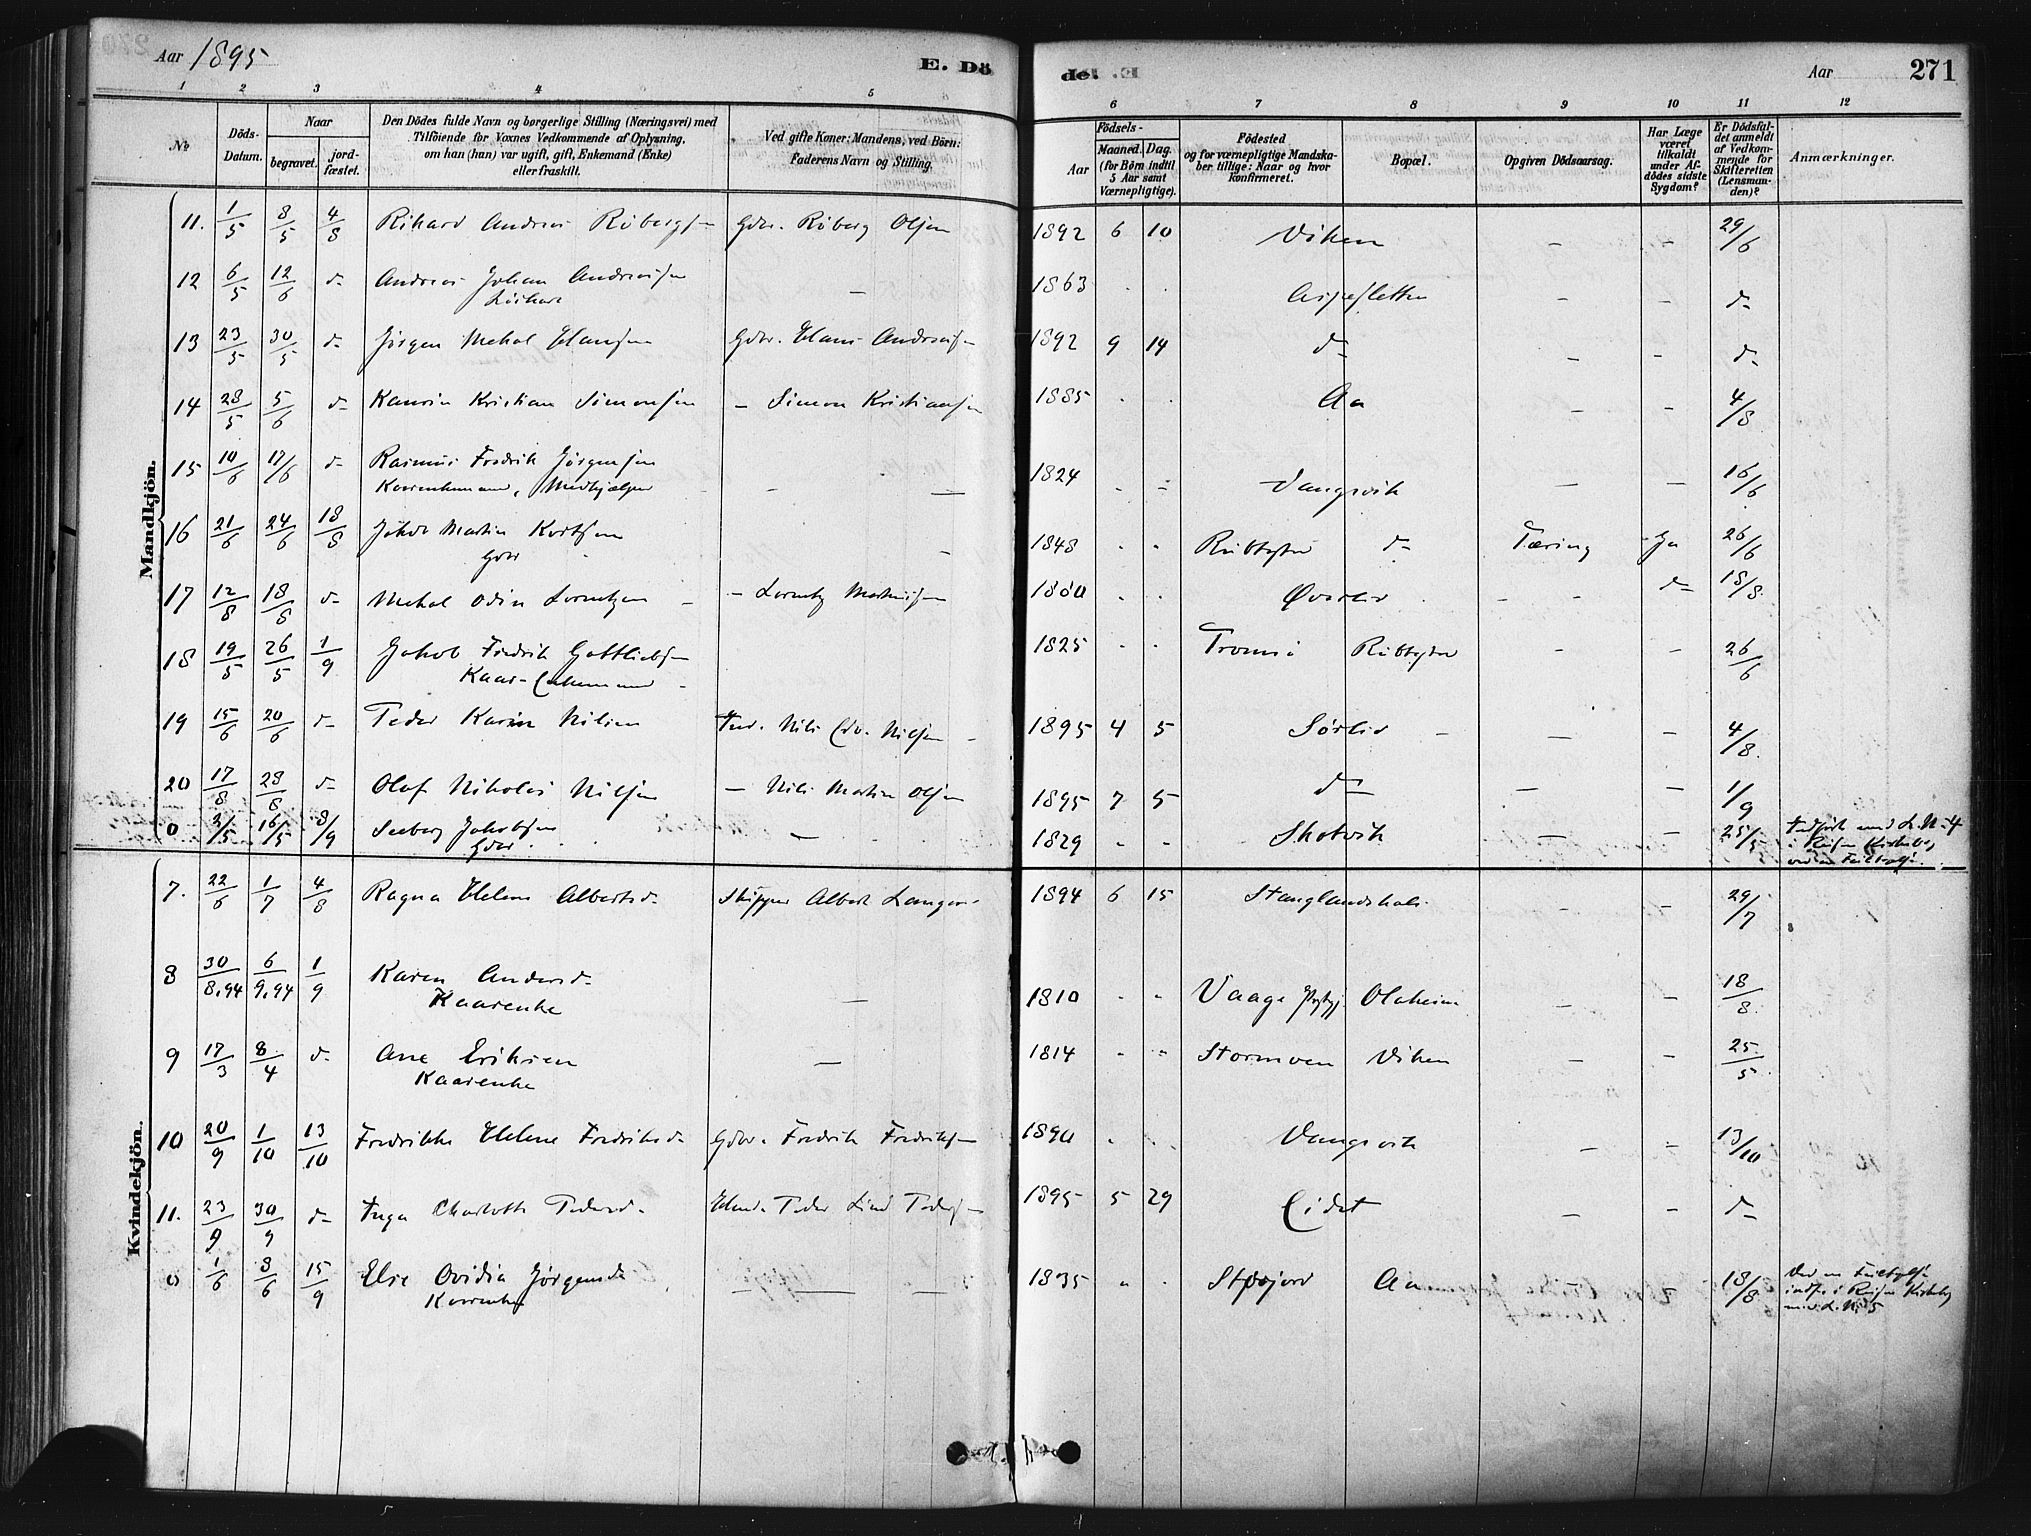 Aar 1895
E. Dö
de.
Aar
271
1 2 3 4 5 6 7 8 9 10 11 12
No
Döds-Datum.
Naar
begravet.
jord-fæstet.
Den Dödes fulde Navn og borgerlige Stilling (Næringsvei) med
Tilföiende for Voxnes Vedkommende af Oplysning,
om han (hun) var ugift, gift, Enkemand (Enke)
eller fraskilt.
Ved gifte Koner: Mandens, ved Börn:
Faderens Navn og Stilling.
Födsels-
Aar
Maaned. Dag.
(for Börn indtil
5 Aar samt
Værnepligtige).
Födested
og for værnepligtige Mandska-
ber tillige: Naar og hvor
konfirmeret.
Bopæl.
Opgiven Dödsaarsag.
Har Læge
været
tilkaldt
under Af-
dödes sidste
Sygdom?
Er Dödsfal-
det anmeldt
af Vedkom-
mende for
Skifteretten
(Lensman-
den)?
Anmærkninger.
Mandkjön.
11. 1/5 8/5 4/8 Rikard Andreas Röbergsen Gdbr. Röberg Olsen 1892 6 10 Viken – 29/6
12 6/5 12/6 d– Andreas Johan Andreassen – 1863 Aspesletten – – d–
13 23/5 30/5 d– Jørgen Mekal Hansen Gdbr. Hans Andreas 1892 9 14 d– – – d–
14 28/5 5/6 d– Kristian Simonsen – Simon Kristiansen 1885 Aa – – 4/8
15 10/6 17/6 d– Rasmus Fredrik Jørgensen
Medhjælper – 1824 Vangsvik – – 16/6
16 21/6 24/6 18/8 Jakob Martin Kortsen
Gdbr – 1848 d– Tæring Ja 26/6
17 12/8 18/8 d– Mekal Odin Lorentzen – Lorentz 1880 Øverlid – – d– 18/8
18 19/5 26/5 1/9 Jakob Fredrik Gottliebsen
Kaar-Enkemand – 1825 Tromsö – – 26/6
19 15/6 20/6 d– Peder Karin Nilsen Nils Edv. Nilsen 1895 4 5 Sørlid – – – 4/8
20 17/8 28/8 d– Olaf Nikolai Nilsen – Nils Martin Olsen 1895 7 5 d– – – 1/9
0 2/5 16/5 8/9 Seeberg Jakobsen
Gdbr. – 1829 Skotvik – – 25/5 Indført med L. N: 4
Kvindekjön.
7. 22/6 1/7 4/8 Ragna Helene Albertsd– Skipper Albert 1894 6 15 Stanglandshals – – 29/7
8 30/8.94 6/9.94 1/9 Karen Andersd–
Kaarenke – 1810 Vaage Olaheim – – 18/8
9 17/3 8/4 d– Ane Eriksen
Kaarenke – 1814 Stormoen Viken – – 25/5
10 20/9 1/10 13/10 Fredrikke Helene Fredriksd– Gdbr. Fredrik Fredriksen 1890 Vangsvik – – 13/10
11. 23/9 30/9 d– Inga Charlotte Pedersd– Peder Lind Pedersen 1895 5 29 Eidet – – d–
0 1/6 8/6 15/9 Else Ovidia Jørgensd– – 1835 Aa – 18/8
med L. N: 5